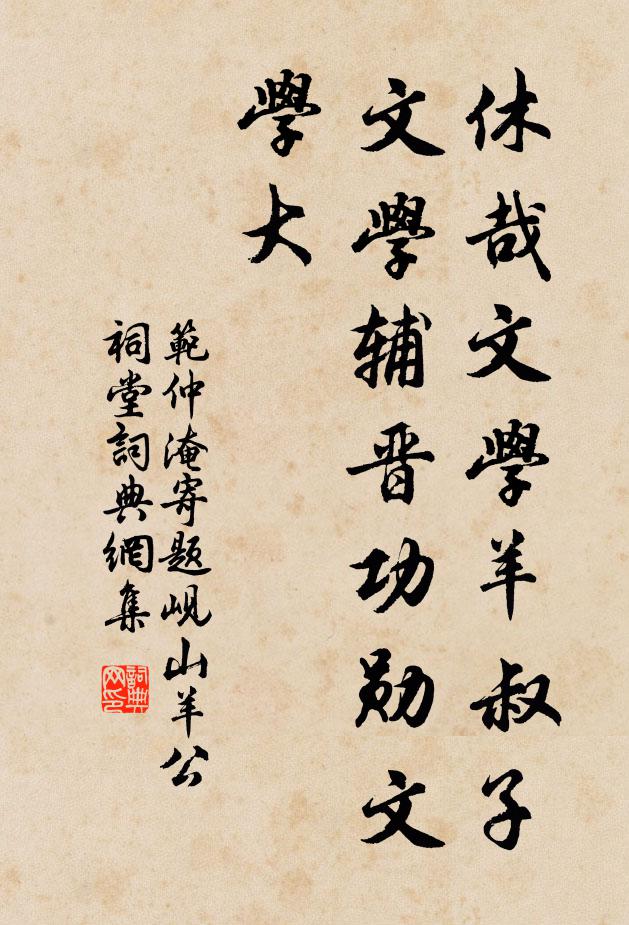 休哉文學羊叔子
文學輔晋功勛文
學大
範仲淹寄題峴山羊公
祠堂詞典網集
詞典
网印